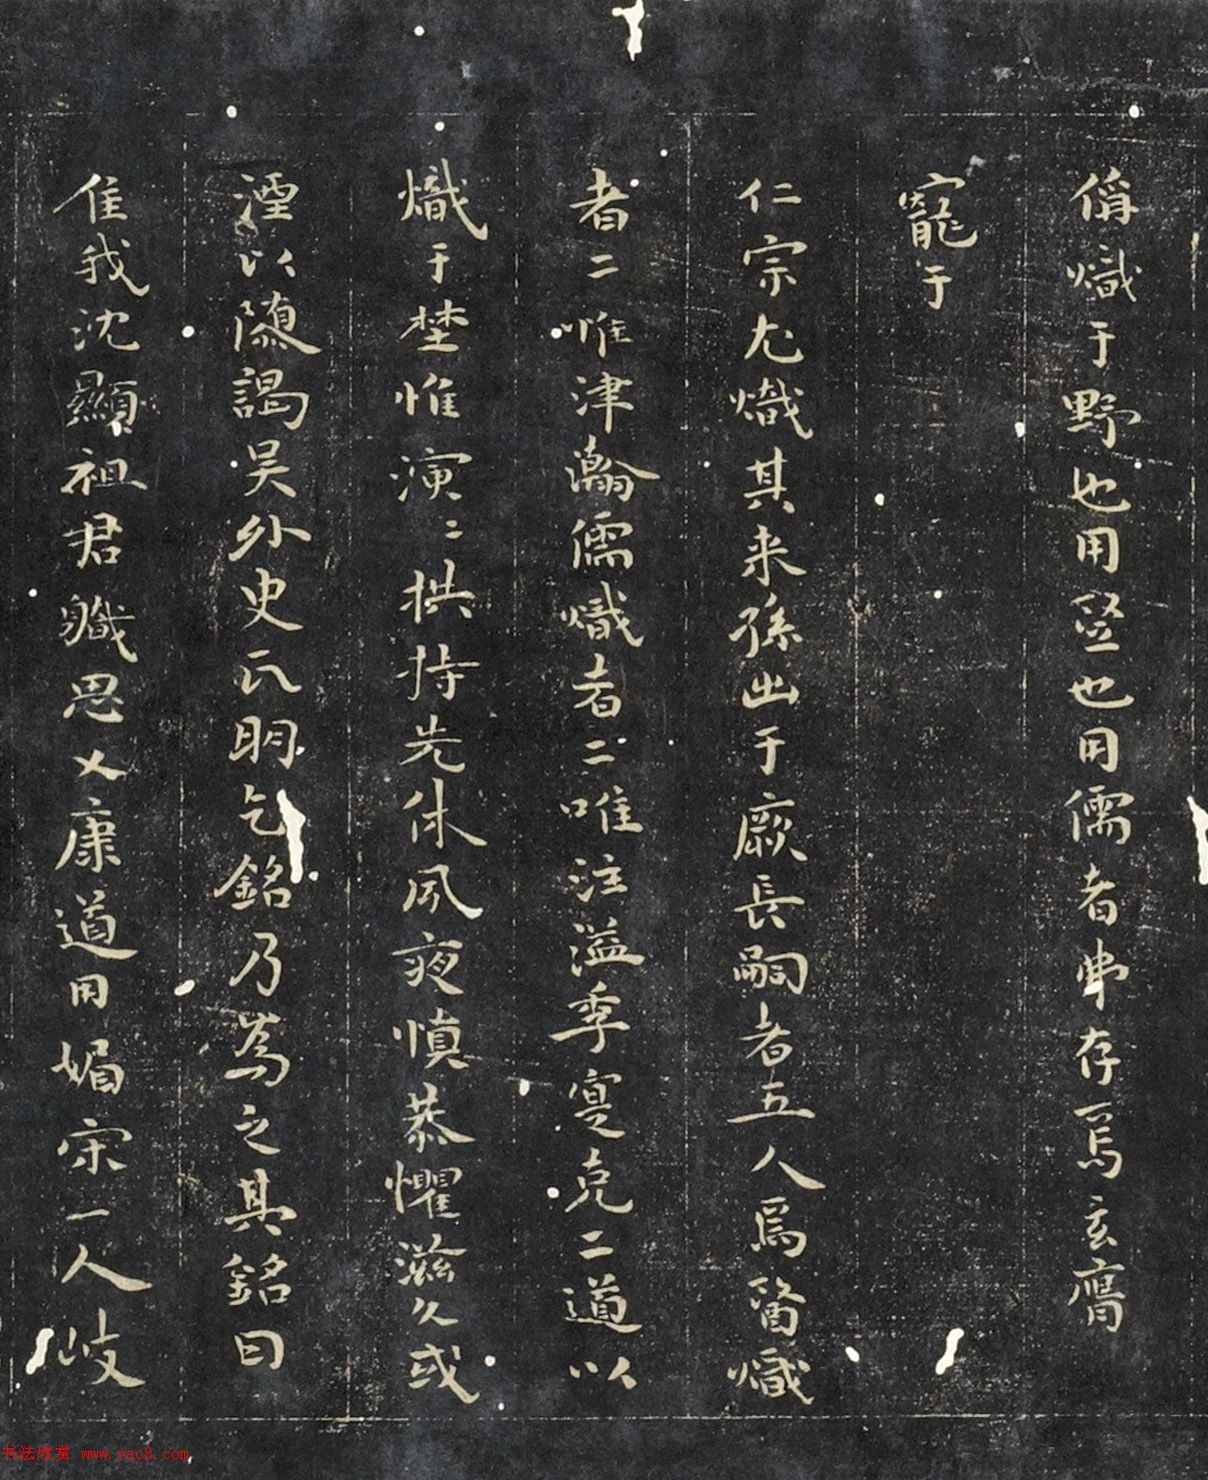 偁熾于野也用豎也用儒者弗存焉玄膺
寵于
仁宗尤熾其来孫出于厥長嗣者五人爲醫熾
者二唯津瀚儒熾者二唯注溢季寔克二道以
熾于埜惟演二拱持先休夙夜慎恭懼滋久或
湮以隨謁吴外史氏明乞銘乃爲之其銘曰
隹我沈顯祖君軄思乂康道用媚宋一人歧
书法欣赏 www.yac8.com